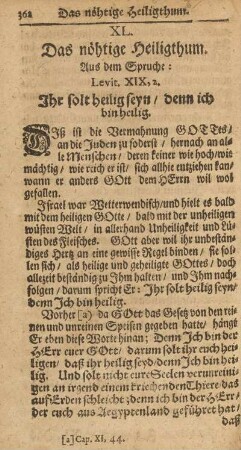 362 Das nöhtige Heiligthum.
XL.
Das nöhtige Heiligthum.
Aus dem Spruche:
Levit. XIX, 2.
Ihr solt heilig seyn / denn ich
bin heilig.
Diß ist die Vermahnung GOTTes /
an die Jüden zu foderst / hernach an al-
le Menschen / deren keiner wie hoch / wie
mächtig / wie reich er ist / sich allhie entziehen kan /
wann er anders GOtt dem HErrn will wol
gefallen.
Israel war Wetterwendisch / und hielt es bald
mit dem heiligen GOtte / bald mit der unheiligen
wüsten Welt / in allerhand Unheiligkeit und Lü-
sten des Fleisches. GOtt aber wil ihr unbestän-
diges Hertz an eine gewisse Regel binden / sie sol-
len sich / als heilige und geheiligte GOttes / doch
allezeit beständig zu Ihm halten / und Ihm nach-
folgen / darum spricht Er: Ihr solt heilig seyn /
denn Ich bin heilig.
Vorher [a] da GOtt das Gesetz von den rei-
nen und unreinen Speisen gegeben hatte / hängt
Er eben diese Worte hinan; Denn Ich bin der
HErr euer GOtt / darum solt ihr euch hei-
ligen / daß ihr heilig seyd / denn Ich bin hei-
lig. Und solt nicht eure Seelen verunreini-
gen an irgend einem kriechenden Thiere das
auf Erden schleicht; denn ich bin der HErr /
der euch aus Aegyptenland geführet hat /
daß
[a] Cap. XI. 44.